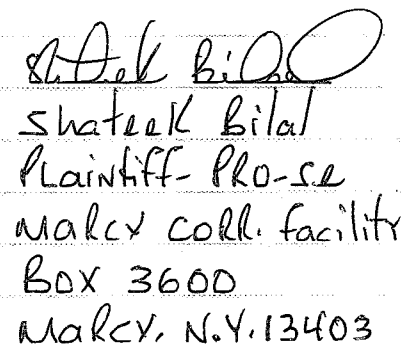 Shateek Bilal
Shateek Bilal
Plaintiff- Pro-se
Marcy Corr. facility
Box 3600
Marcy, N.Y. 13403